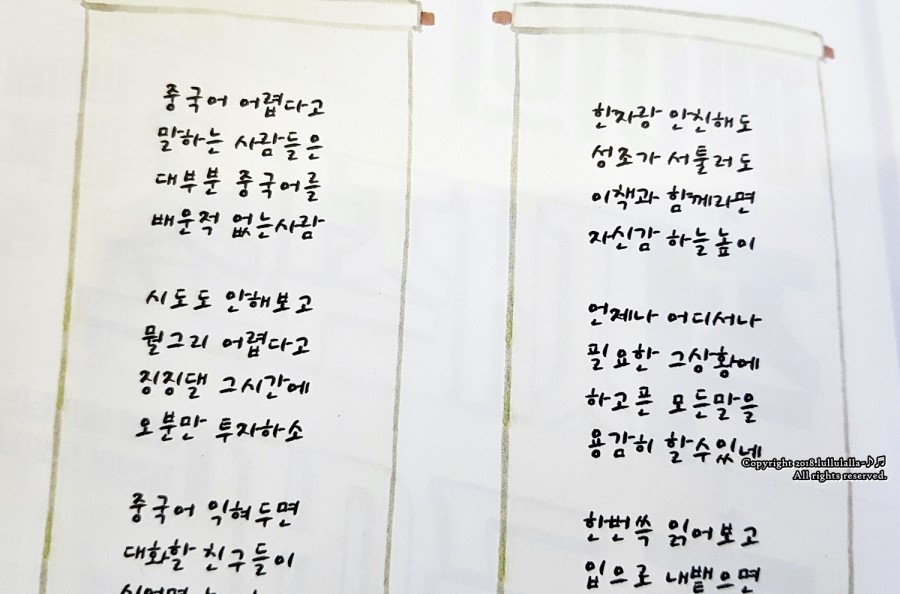 중국어 어렵다고
말하는 사람들은
대부분 중국어를
배운적 없는사람
시도도 안해보고
뭘그리 어렵다고
징징댈 그시간에
오분만 투자하소
중국어 익혀두면
대화할 친구들이
한자랑 안친해도
성조가 서툴러도
이책과 함께라면
자신감 하늘높이
언제나 어디서나
필요한 그상황에
하고픈 모든말을
용감히 할수있네
한번쓱 읽어보고
입으로 내뱉으면
Copyright 2018.lullulalla~♪♬
All rights reserved.